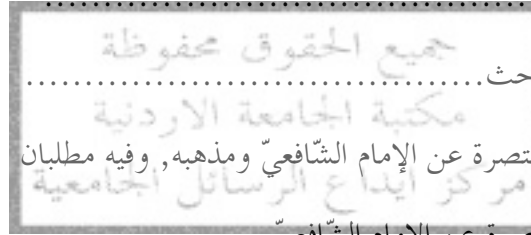 جميع الحقوق محفوظة
حث......................................
مكتبة الجامعة الاردنية
تصرة عن الإمام الشّافعيّ ومذهبه, وفيه مطلبان
مركز ايداع الرسائل الجامعية
عن الإمام الشّافعيّ